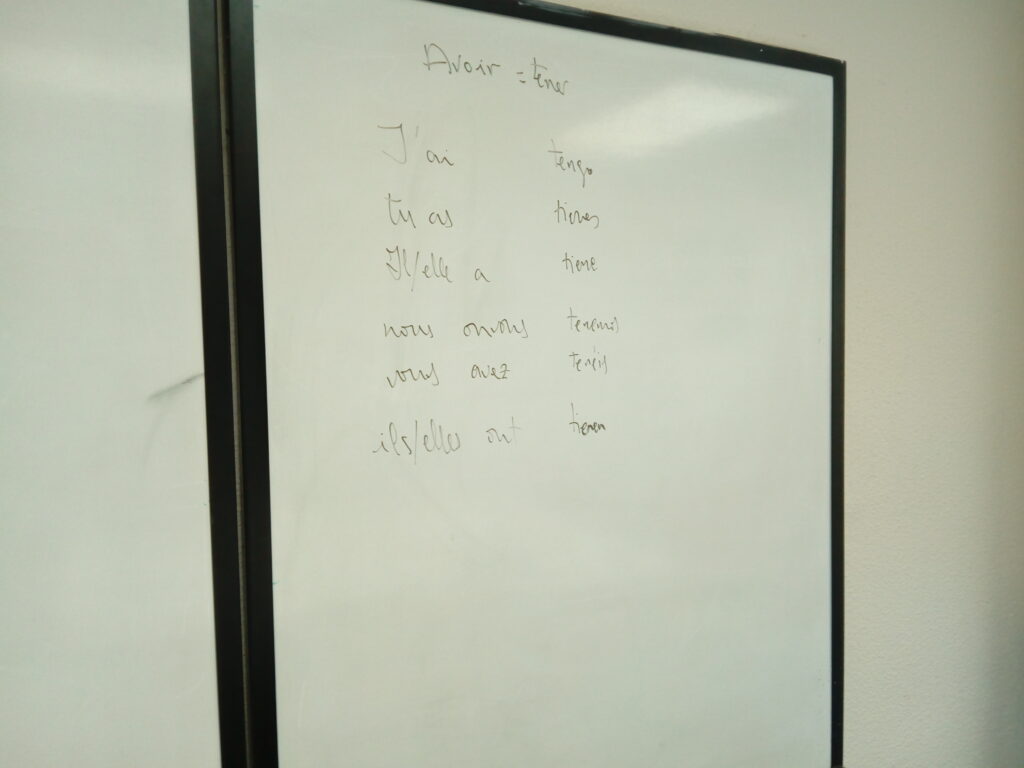 Avoir = tener
J'ai tengo
tu as tienes
Il/elle a tiene
nous avons tenemos
vous avez tenéis
ils/elles ont tienen